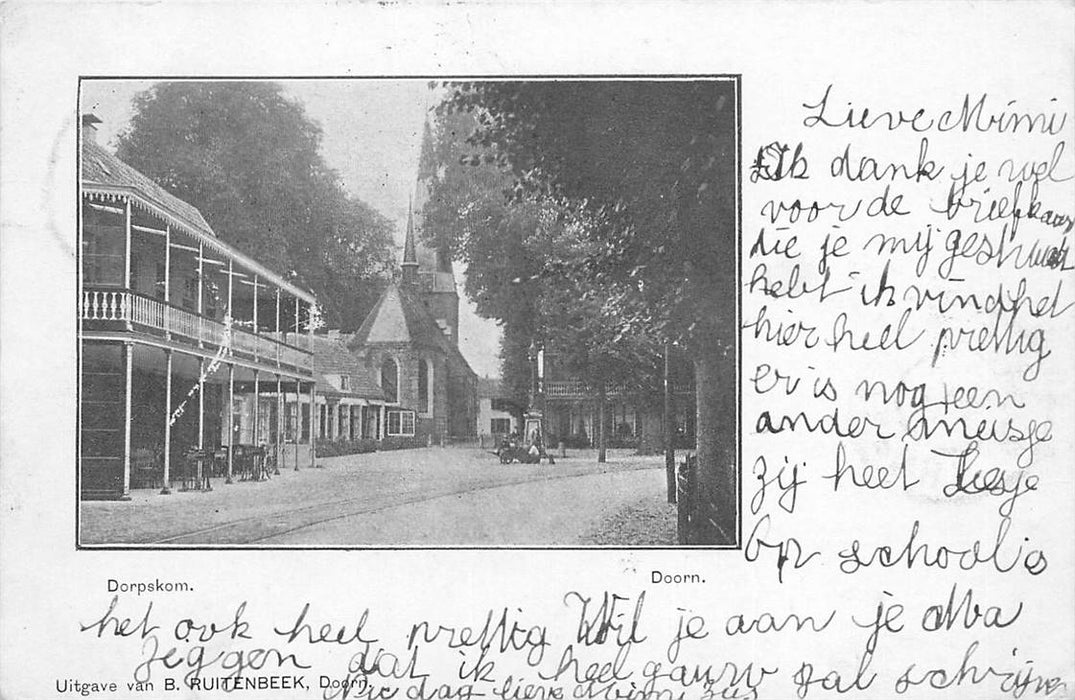 Lieve Mimi
Ik dank je wel
voor de briefkaar
die je mij gestuurt
hebt ik vind het
hier heel prettig
er is nog een
ander meisje
zij heet Liesje
Op school is
Dorpskom.
Doorn.
het ook heel prettig Wil je aan je Ma
zeggen dat ik heel gauw zal schrijven
Uitgave van B. RUITENBEEK, Doorn.
dag lieve Mimi zus